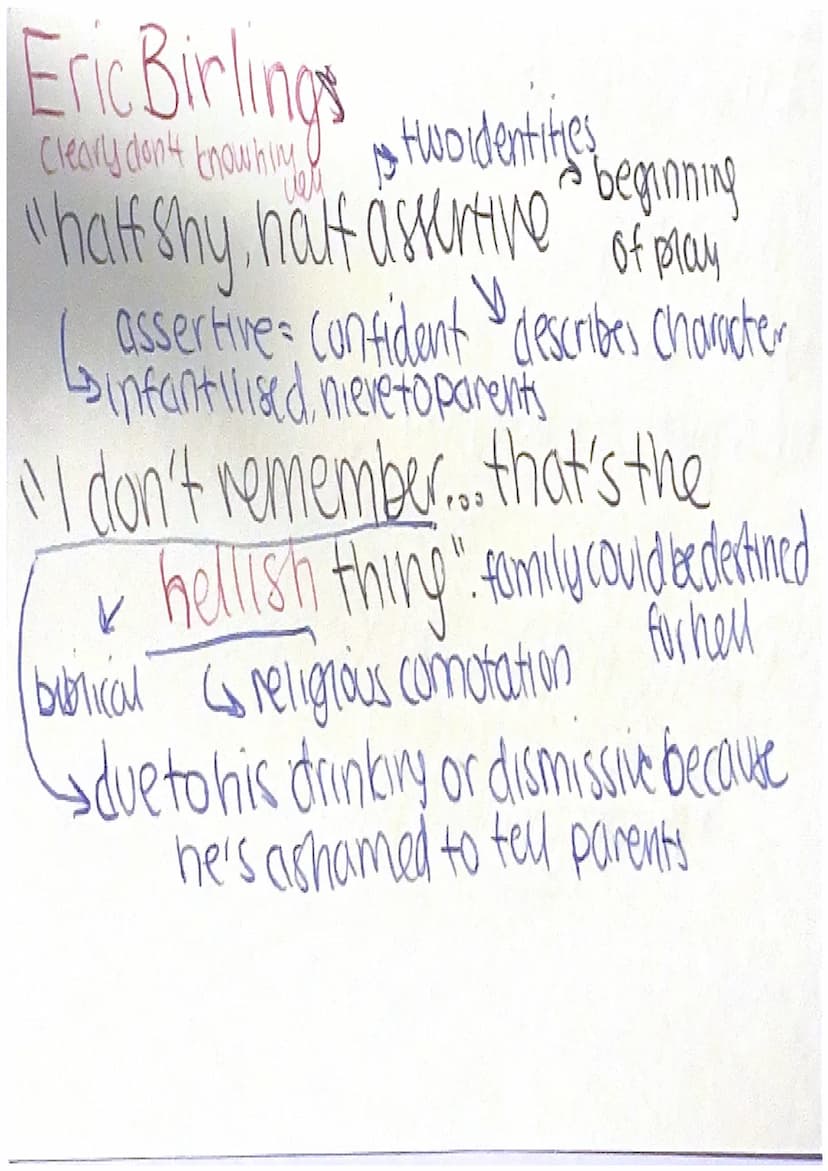 Eric Birlings
Cleary don't know him
well
→ two identities
→ beginning
of play
"half shy, half assertive
assertive = confident
describes character
↳ infantilised, nieve to parents
"I don't remember... that's the
hellish thing". family could be destined
for hell
biblical ↳ religious connotation
→ due to his drinking or dismissive because
he's ashamed to tell parents